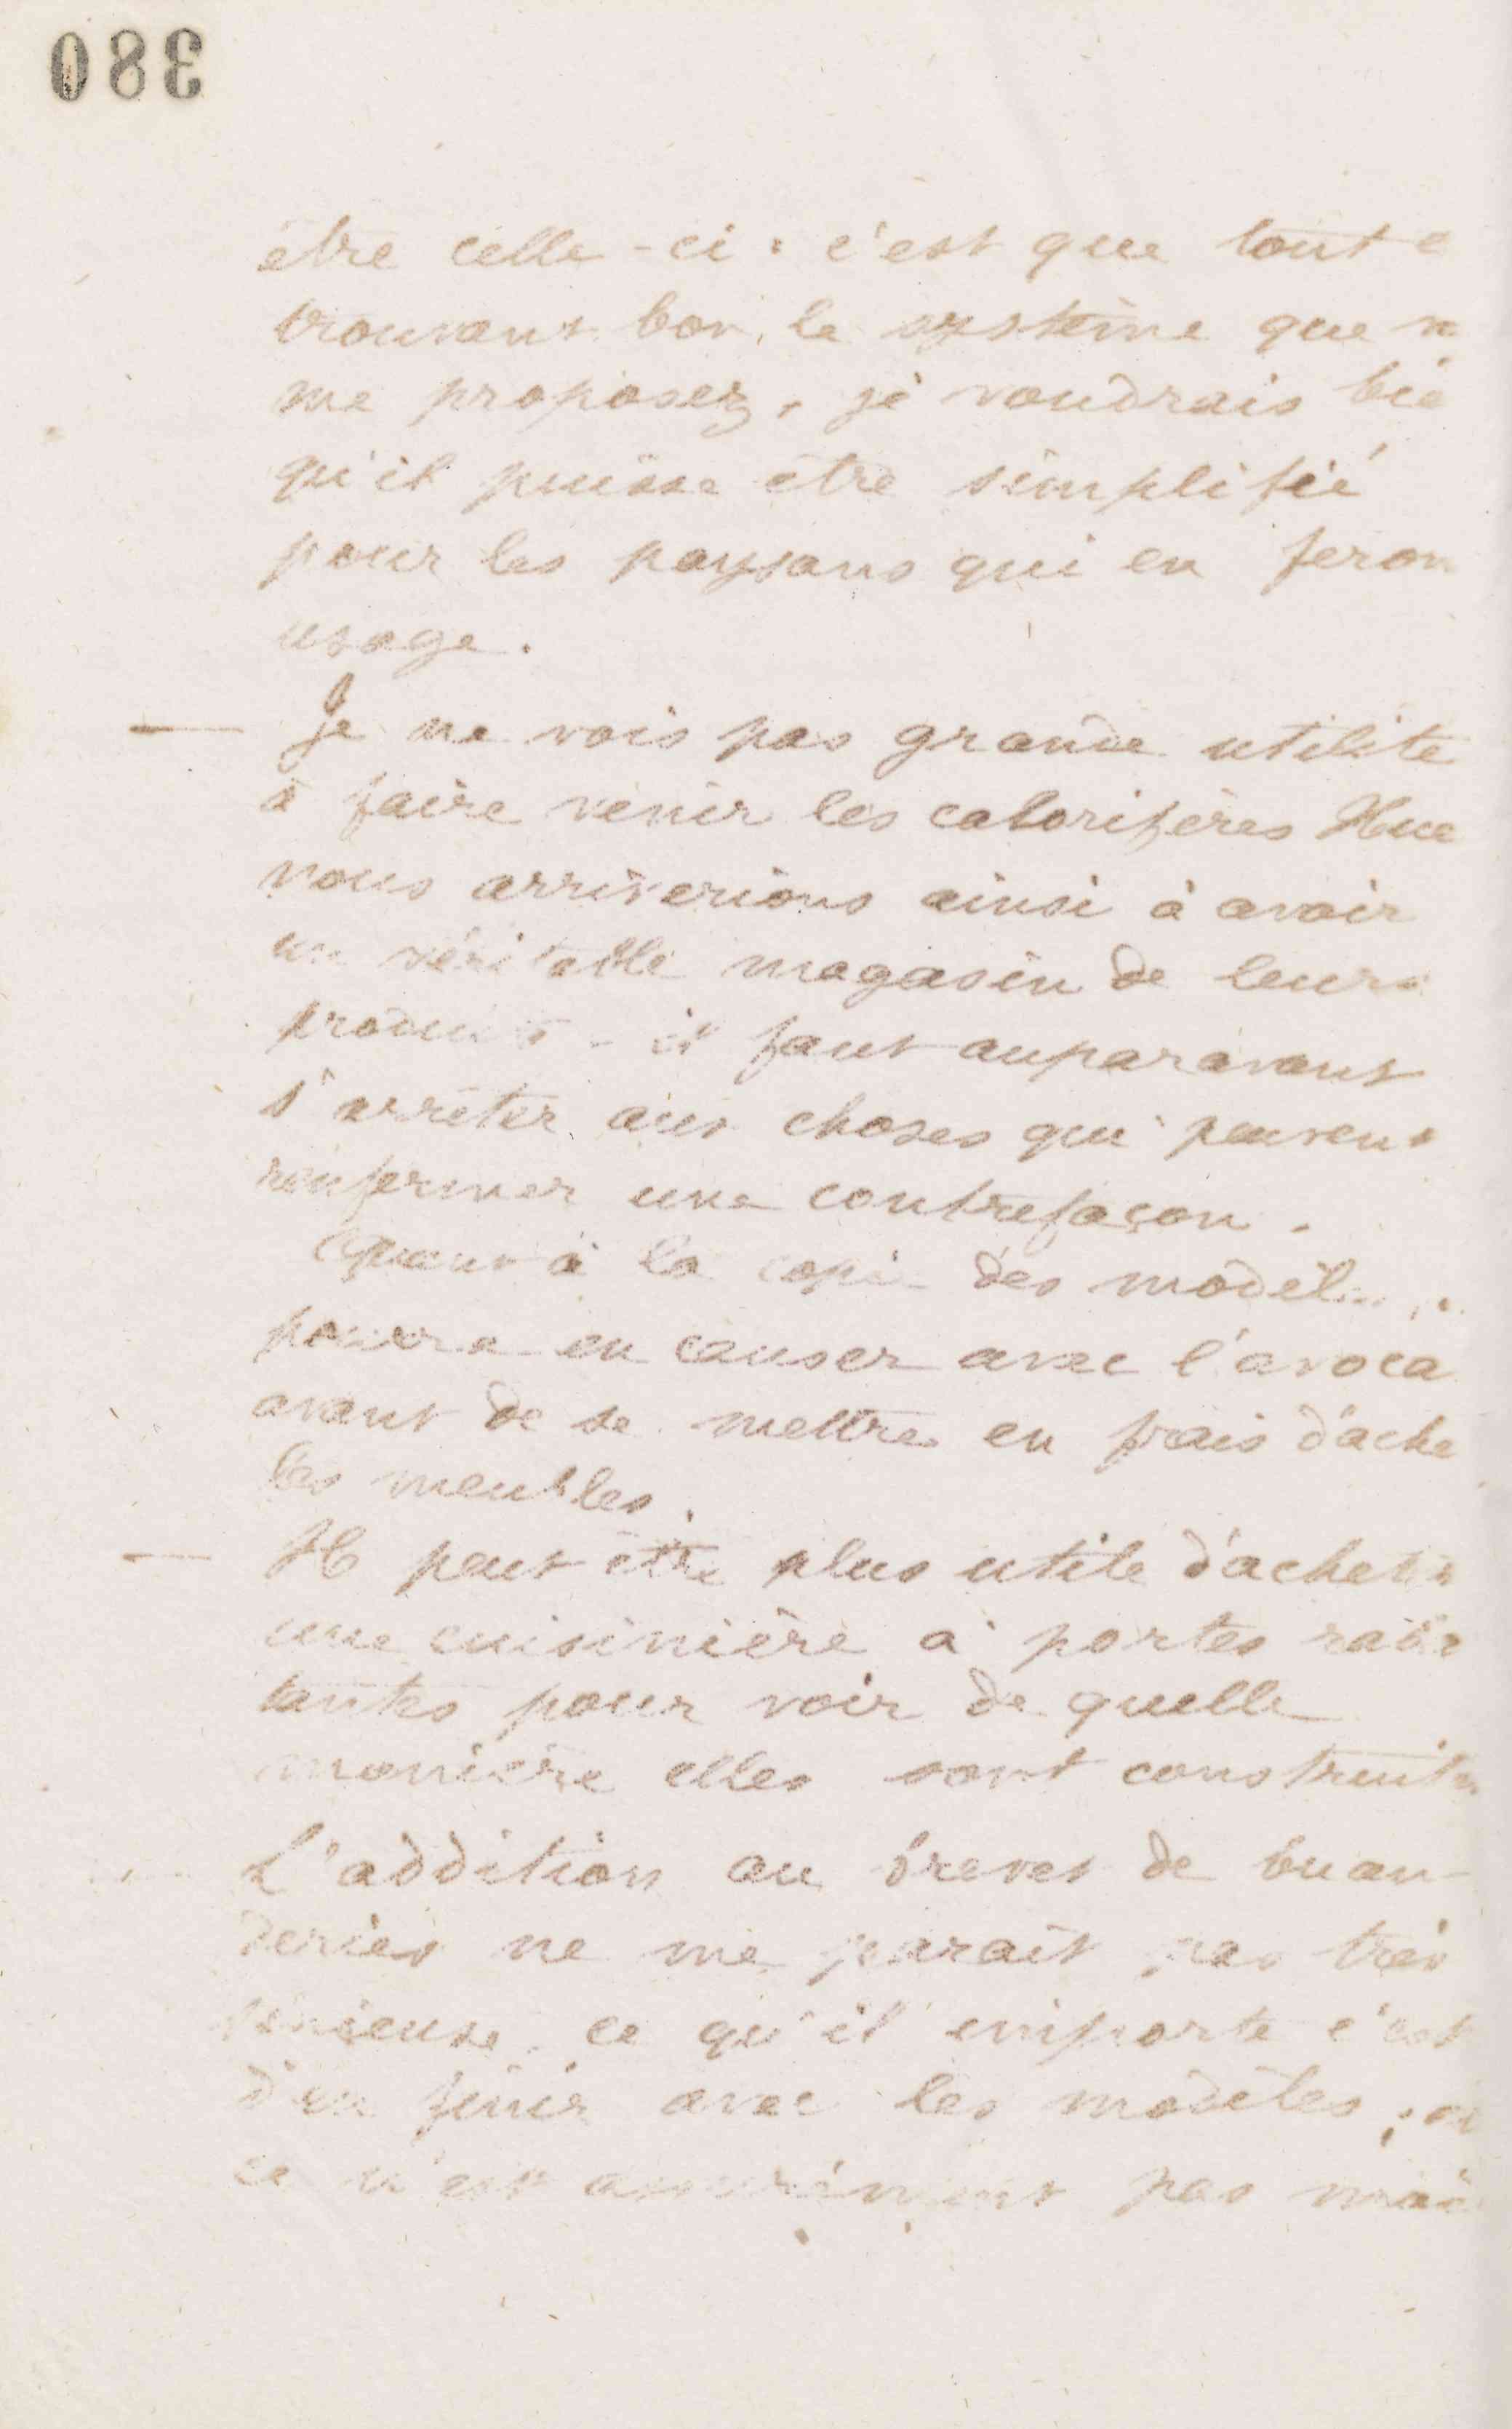 380
être celle-ci : c'est que tout e
trouvant bon, le système que v
me proposez, je voudrais bie
qu'il puisse être simplifié
pour les paysans qui en feron
usage.
— Je ne vois pas grande utilité
à faire venir les calorifères Hue
nous arriverions ainsi à avoir
un véritable magasin de leurs
produits - il faut auparavant
s'arrêter aux choses qui peuvent
renfermer une contrefaçon.
Quant à la copie des modèl
pourra en causer avec l'avoca
avant de se mettre en frais d'ache
les meubles.
— Il peut être plus utile d'acheter
une cuisinière à portes raba
tantes pour voir de quelle
manière elles sont construites
L'addition au brevet de buan
deries ne me paraît pas très
sérieuse. ce qu'il importe c'est
d'en finir avec les modèles ;
ce n'est assurément pas